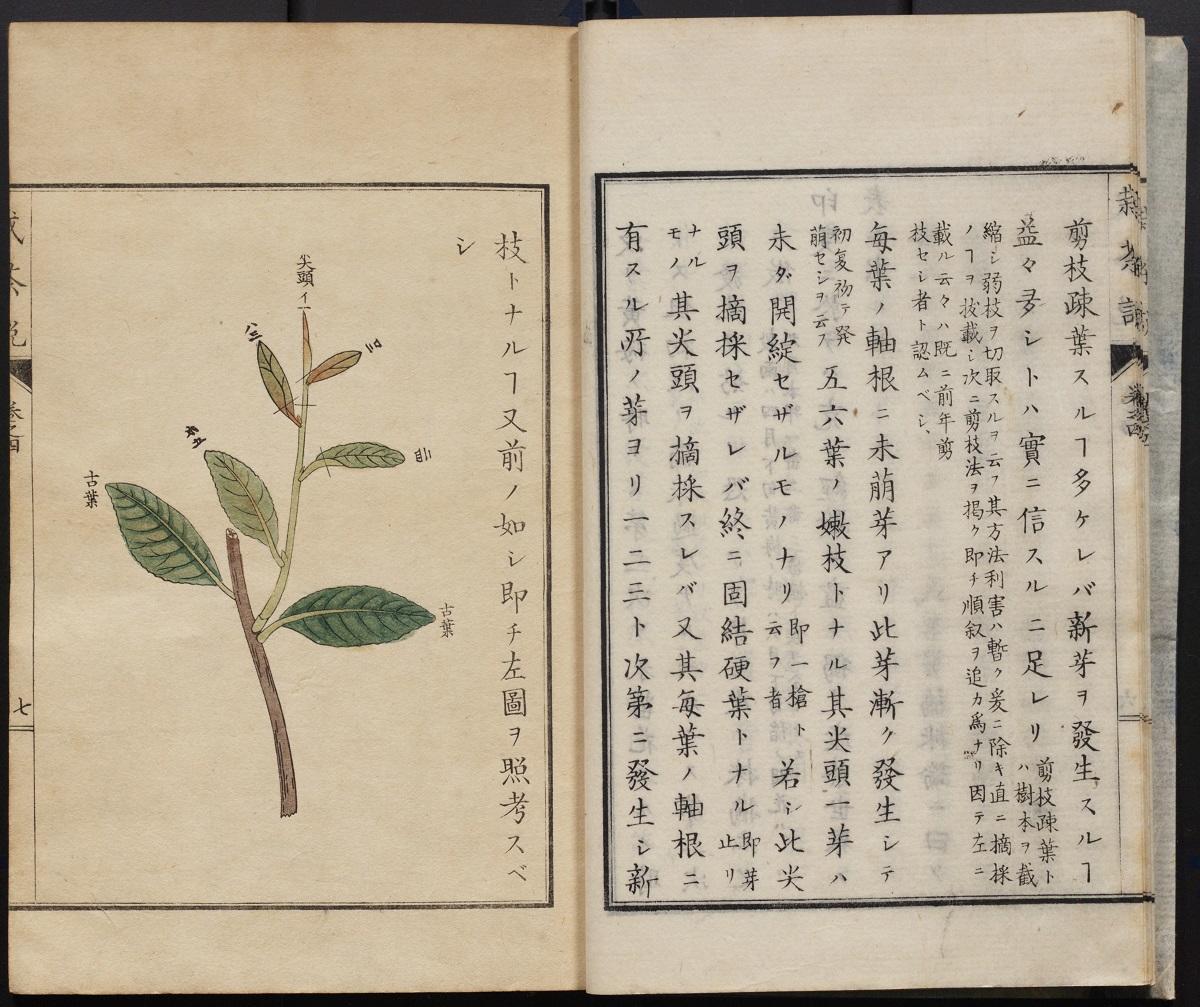 剪枝疎葉スルヿ多ケレバ新芽ヲ發生スルヿ
益々多シトハ實ニ信スルニ足レリ
剪枝疎葉ト
ハ樹本ヲ截
縮シ弱枝ヲ切取スルヲ云フ其方法利害ハ暫ク爰ニ除キ直ニ摘採
ノヿヲ拔載シ次ニ剪枝法ヲ掲ク即チ順叙ヲ追カ爲ナリ因テ左ニ
載ル云々ハ既ニ前年剪
枝セシ者ト認ムベシ、
毎葉ノ軸根ニ未萠芽アリ此芽漸ク發生シテ
初复初テ発
萠セシヲ云フ
五六葉ノ嫩枝トナル其尖頭一芽ハ
未ダ開綻セザルモノナリ
即一槍ト
云フ者
若シ此尖
頭ヲ摘採セザレバ終ニ固結硬葉トナル
即芽
止リ
ナル
モノ
其尖頭ヲ摘採スレバ又其毎葉ノ軸根ニ
有スル所ノ芽ヨリ一二三ト次第ニ發生シ新
枝トナルヿ又前ノ如シ即チ左圖ヲ照考スベ
シ
尖頭イ一
ハ三
古葉
古葉
七